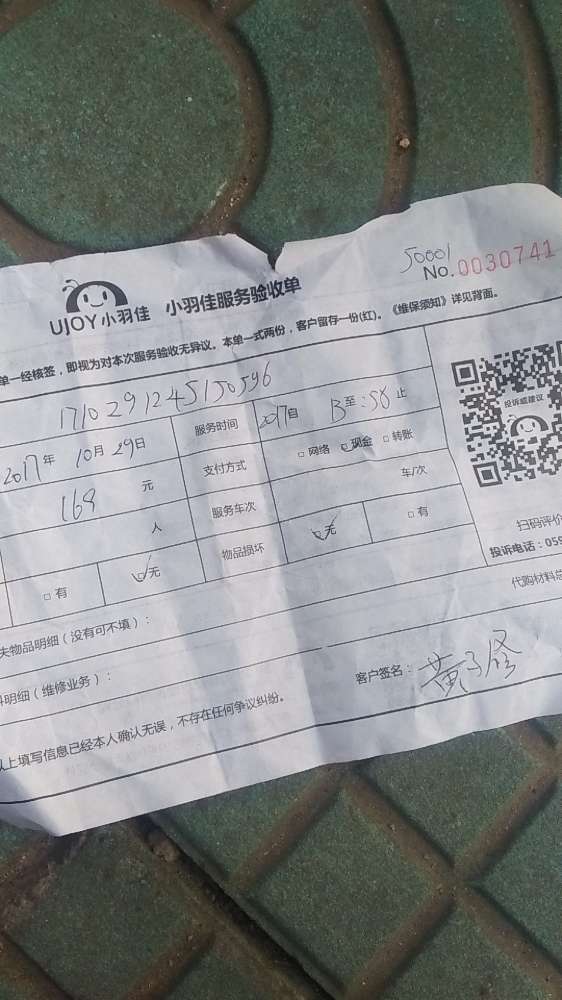 50001
No.0030741
UJOY小羽佳 小羽佳服务验收单
单一经核签，即视为对本次服务验收无异议。本单一式两份，客户留存一份(红)。《维保须知》详见背面。
投诉或建议
1710291245150596
2017年10月29日 服务时间 2017自 13至:58止
元 支付方式 □网络 现金 □转账
人 服务车次 车/次
□有 无 物品损坏 无 □有
扫码评价
投诉电话：059
失物品明细（没有可不填）： 代购材料总
料明细（维修业务）：
客户签名：
以上填写信息已经本人确认无误，不存在任何争议纠纷。